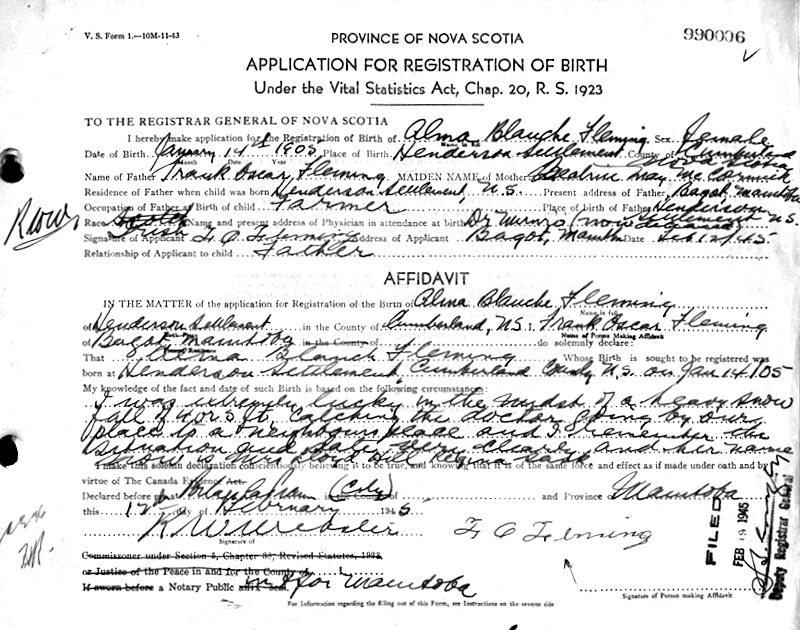 V. S. Form 1.—10M-11-43
PROVINCE OF NOVA SCOTIA
990006
APPLICATION FOR REGISTRATION OF BIRTH
Under the Vital Statistics Act, Chap. 20, R. S. 1923
TO THE REGISTRAR GENERAL OF NOVA SCOTIA
I hereby make application for the Registration of Birth of Alma Blanche Fleming Sex Female
Date of Birth January 14th 1905 Place of Birth Henderson Settlement County of Cumberland
Month Date Year Nova Scotia
Name of Father Frank Oscar Fleming MAIDEN NAME of Mother Beatrice May McCormick
Residence of Father when child was born Henderson Settlement, N.S. Present address of Father Bagot, Manitoba
Occupation of Father at Birth of child Farmer Place of birth of Father Henderson
Settlement N.S.
Race Scotch Name and present address of Physician in attendance at birth Dr Munro (now deceased
Irish
Signature of Applicant F O Fleming Address of Applicant Bagot, Manitoba Date Feb 12/45
Relationship of Applicant to child Father
AFFIDAVIT
IN THE MATTER of the application for Registration of the Birth of Alma Blanche Fleming
Name in full
of Henderson Settlement in the County of Cumberland, N.S. I, Frank Oscar Fleming
Birth Place Name of Person Making Affidavit
of Bagot Manitoba in the County of do solemnly declare:
That Alma Blanch Fleming Whose Birth is sought to be registered was
born at Henderson Settlement, Cumberland County N.S. on Jan 14/05
My knowledge of the fact and date of such Birth is based on the following circumstances:
I was extremely lucky in the midst of a heavy snow
fall of 4 or 5 ft. catching the doctor going by our
place to a neighbours place and I remember the
situation and Baby very clearly and her name
I make this solemn declaration conscientiously believing it to be true, and knowing that it is of the same force and effect as if made under oath and by
virtue of The Canada Evidence Act.
Declared before me at (City) of and Province Manitoba
this 12 day of February 1945
K W Webster F O Fleming
Signature of
Commissioner under Section 5, Chapter 38, Revised Statutes, 1923,
or Justice of the Peace in and for the County of
If sworn before a Notary Public in & for Manitoba
Signature of Person making Affidavit
For Information regarding the filling out of this Form, see Instructions on the reverse side
FILED
FEB 19 1945
Deputy Registrar General